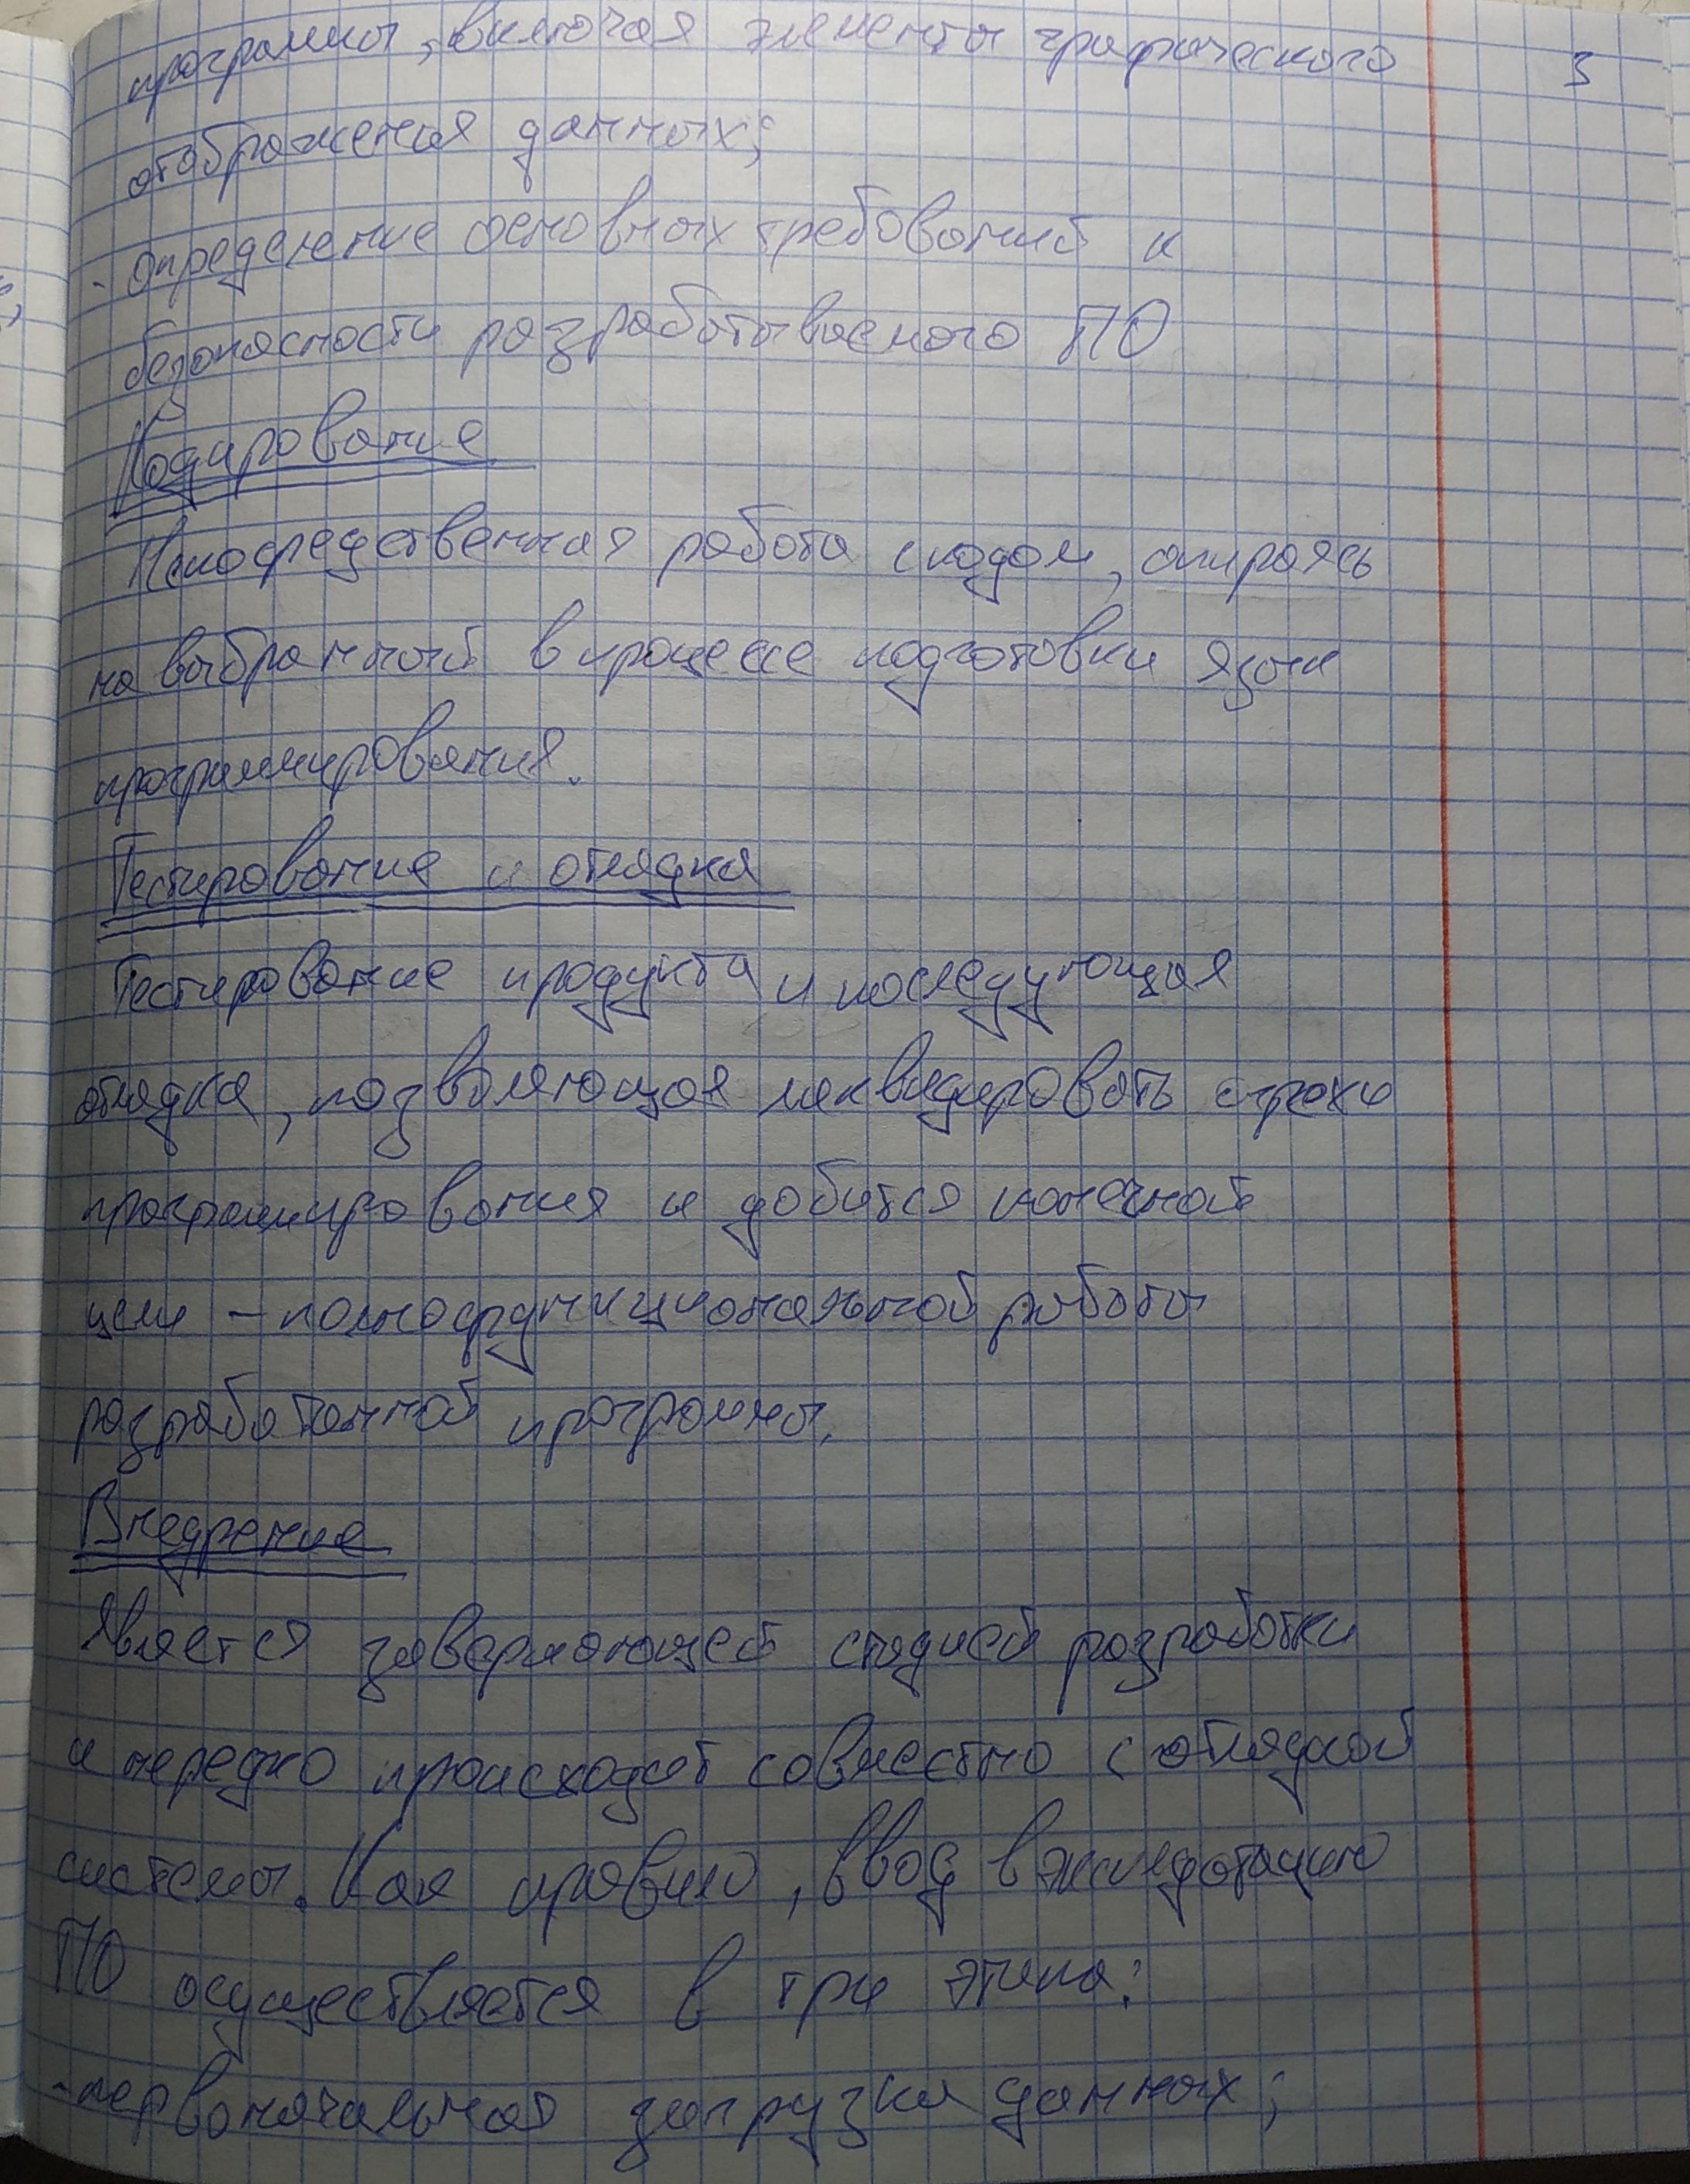 программы, включая элементы графического 3
отображения данных;
- определение основных требований к
безопасности разрабатываемого ПО
Кодирование
Непосредственная работа с кодом, опираясь
на выбранный в процессе подготовки язык
программирования.
Тестирование и отладка
Тестирование продукта и последующая
отладка, позволяющая ликвидировать огрехи
программирования и добится конечной
цели - полнофункциональной работы
разработанной программы.
Внедрение
Является завершающей стадией разработки
и нередко происходит совместно с отладкой
системы. Как правило, ввод в эксплуатацию
ПО осуществляется в три этапа:
- первоначальная загрузка данных;